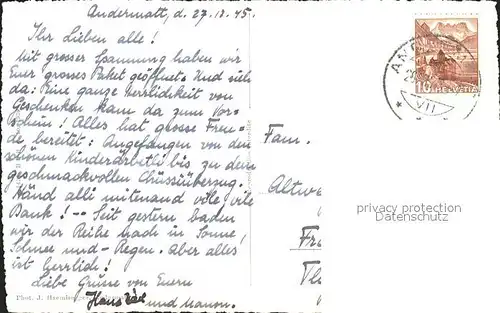 Andermatt, d. 27.12.45.
Ihr Lieben alle!
Mit grosser Spannung haben wir
Euer grosses Paket geöffnet. Und siehe
da: Eine ganze Herrlichkeit von
Geschenken kam da zum Vor-
schein! Alles hat grosse Freu-
de bereitet: Angefangen von den
schönen Kinderarbetli bis zu dem
geschmackvollen Chüssiüberzug.
Händ alli mitenand vile, vile
Dank! -- Seit gestern baden
wir der Reihe nach in Sonne,
Schnee und - Regen. Aber alles
ist herrlich!
Liebe Grüsse von Euern
Hans und Manon.
Phot. J.
Fam.
Altwe
Fr
HELVETIA
10
AN
VII
privacy protection
Datenschutz